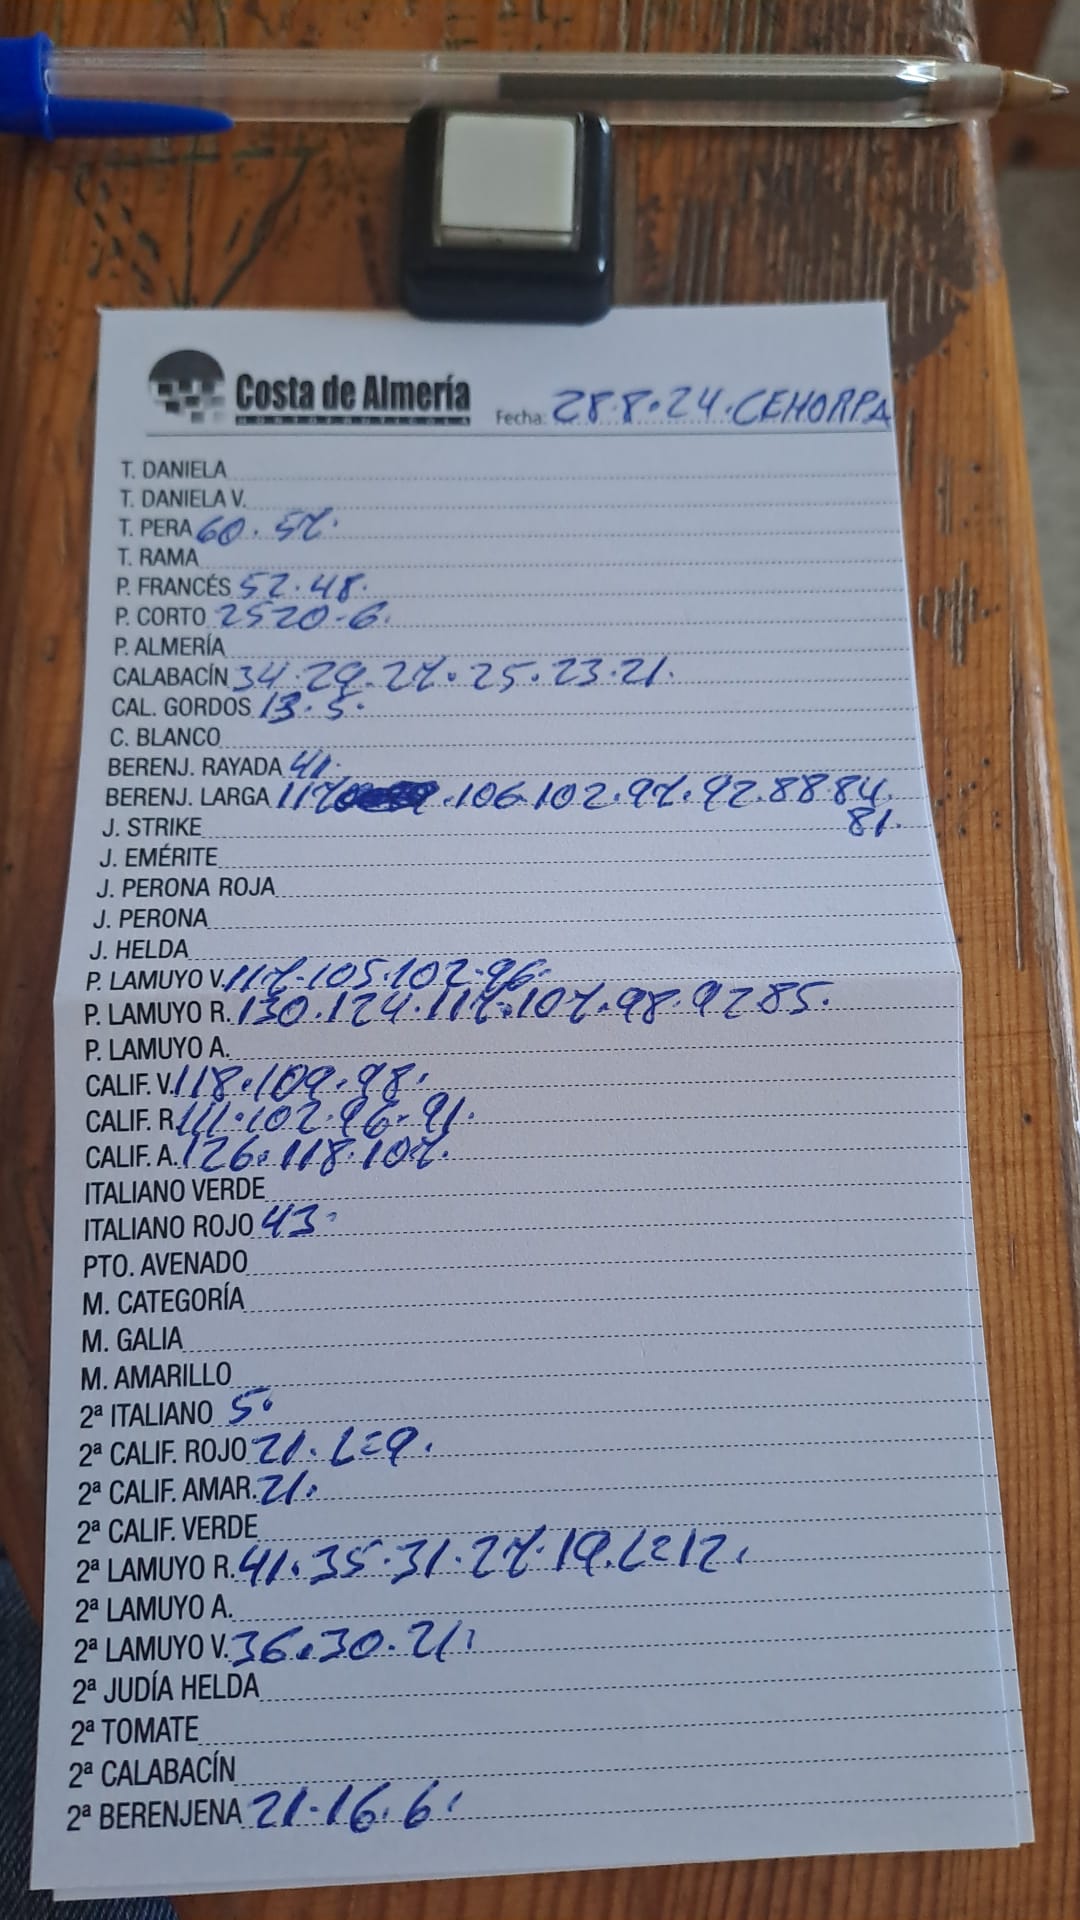 Costa de Almería
HORTOFRUTÍCOLA
Fecha: 28.8.24.CEHORPA
T. DANIELA
T. DANIELA V.
T. PERA 60. 57.
T. RAMA
P. FRANCÉS 52.48.
P. CORTO 2520-6.
P. ALMERÍA
CALABACÍN 34.29.27.25.23.21.
CAL. GORDOS 13.5.
C. BLANCO
BERENJ. RAYADA 41.
BERENJ. LARGA 117.106.102.97.92.88 84.
81.
J. STRIKE
J. EMÉRITE
J. PERONA ROJA
J. PERONA
J. HELDA
P. LAMUYO V. 117.105.102.96.
P. LAMUYO R. 130.124.117.107.98.92 85.
P. LAMUYO A.
CALIF. V. 118.109.98.
CALIF. R. 111.102.96.91.
CALIF. A. 126.118.107.
ITALIANO VERDE
ITALIANO ROJO 43.
PTO. AVENADO
M. CATEGORÍA
M. GALIA
M. AMARILLO
2ª ITALIANO 5.
2ª CALIF. ROJO 21. L=9.
2ª CALIF. AMAR. 21.
2ª CALIF. VERDE
2ª LAMUYO R. 41.35.31.27.19.L=12.
2ª LAMUYO A.
2ª LAMUYO V. 36.30.21.
2ª JUDÍA HELDA
2ª TOMATE
2ª CALABACÍN
2ª BERENJENA 21.16.6.